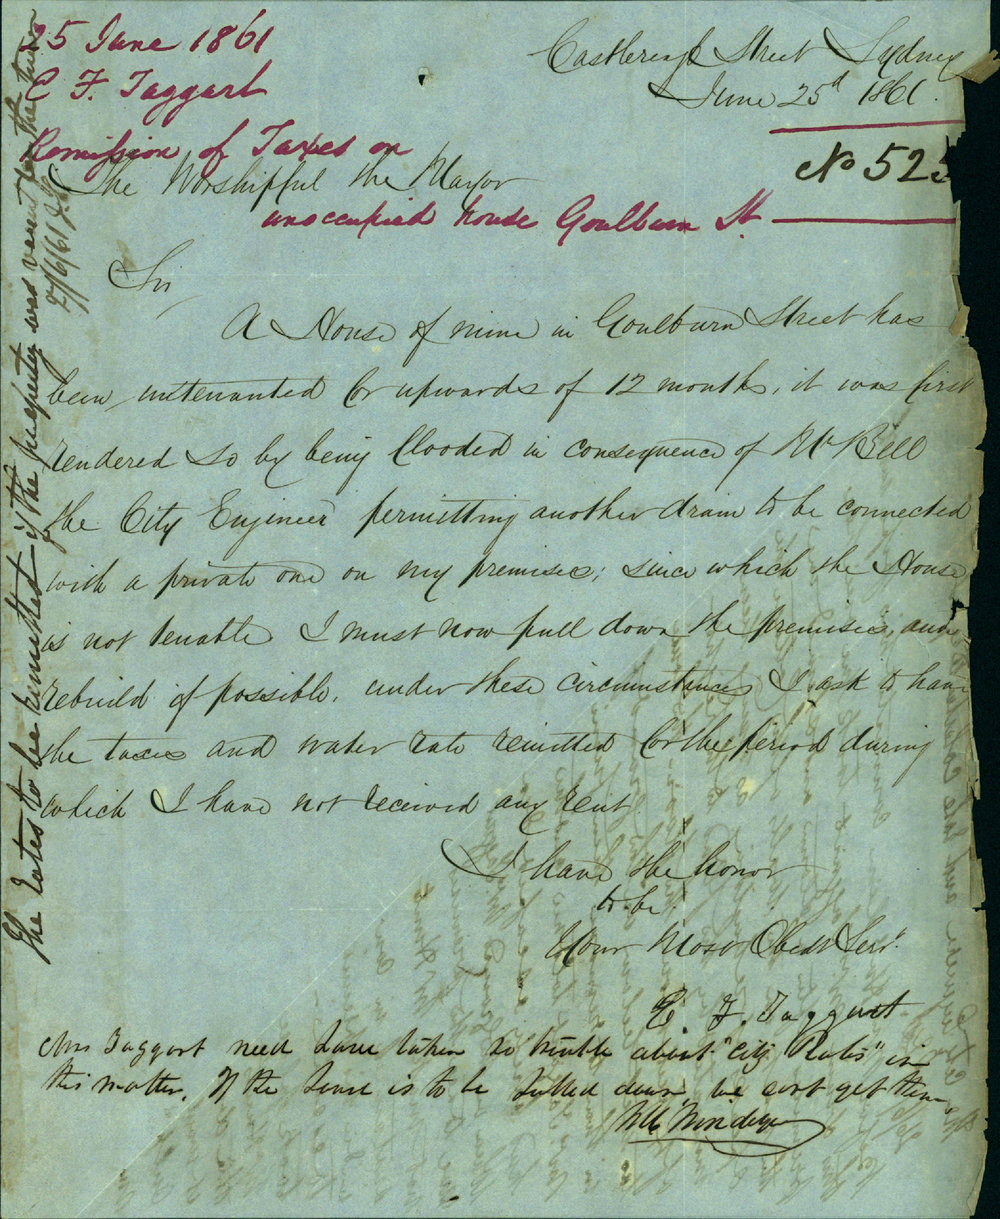 25 June 1861
E F. Taggart
Remission of Taxes on
unoccupied house Goulburn St.
Castlereagh Street Sydney
June 25th 1861.
No 525
The Worshipful the Mayor
Sir,
A House of mine in Goulburn Street has
been untenanted for upwards of 12 months, it was first
rendered so by being flooded in consequence of Mr Bell
the City Engineer permitting another drain to be connected
with a private one on my premises; since which the House
is not tenable I must now pull down the premises, and
rebuild if possible, under these circumstances I ask to have
the taxes and water rate remitted for the period during
which I have not received any rent
I have the honor
to be
Your Most Obedt Servt.
E. F. Taggart
Mrs Taggart need have taken no trouble about "City Rates" in
this matter. If the house is to be pulled down we cant get them
The rates to be remitted if the property was vacant for the time
27/6/61